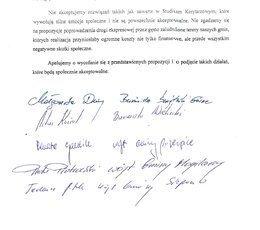 Nie akceptujemy rozwiązań takich jak zawarte w Studium Korytarzowym, które
wywołują silne emocje społeczne i nie są powszechnie akceptowalne. Nie zgadzamy się
na propozycje poprowadzenia drogi ekspresowej przez gęsto zaludnione tereny naszych gmin,
których realizacja przyniosłaby ogromne koszty nie tylko finansowe, ale przede wszystkim
negatywne skutki społeczne.
Apelujemy o wycofanie się z przedstawionych propozycji i o podjęcie takich działań,
które będą społecznie akceptowalne:
Małgorzata
Burmistrz
wójt gminy
Piotr Piotrowski wójt Gminy Mogilany
Tadeusz